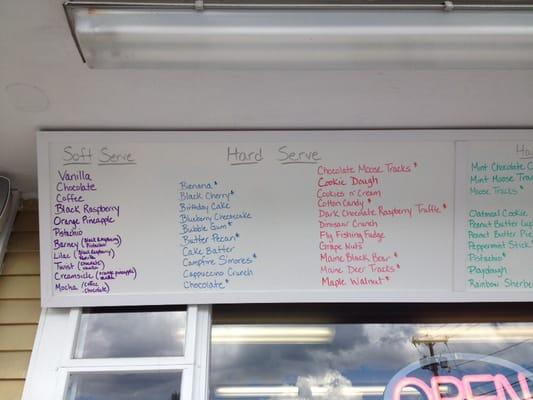 Soft Serve
Vanilla
Chocolate
Coffee
Black Raspberry
Orange Pineapple
Pistachio
Barney (Black Raspberry Pistachio
Lilac (Black Raspberry Vanilla
Twist (chocolate vanilla
Creamsicle (orange pineapple
Mocha (coffee chocolate)
Hard Serve
Banana*
Black Cherry*
Birthday Cake
Blueberry Cheesecake
Bubble Gum*
Butter Pecan*
Cake Batter
Campfire S'mores*
Cappuccino Crunch
Chocolate*
Chocolate Moose Tracks*
Cookie Dough
Cookies n' Cream
Cotton Candy*
Dark Chocolate Raspberry Truffle*
Dinosaur Crunch
Fly Fishing Fudge
Grape Nuts
Maine Black Bear*
Maine Deer Tracks*
Maple Walnut*
Ha
Mint Chocolate C
Mint Moose Tra
Moose Tracks*
Oatmeal Cookie
Peanut Butter Cup
Peanut Butter Pie
Peppermint Stick*
Pistachio*
Playdough
Rainbow Sherbe
OPEN